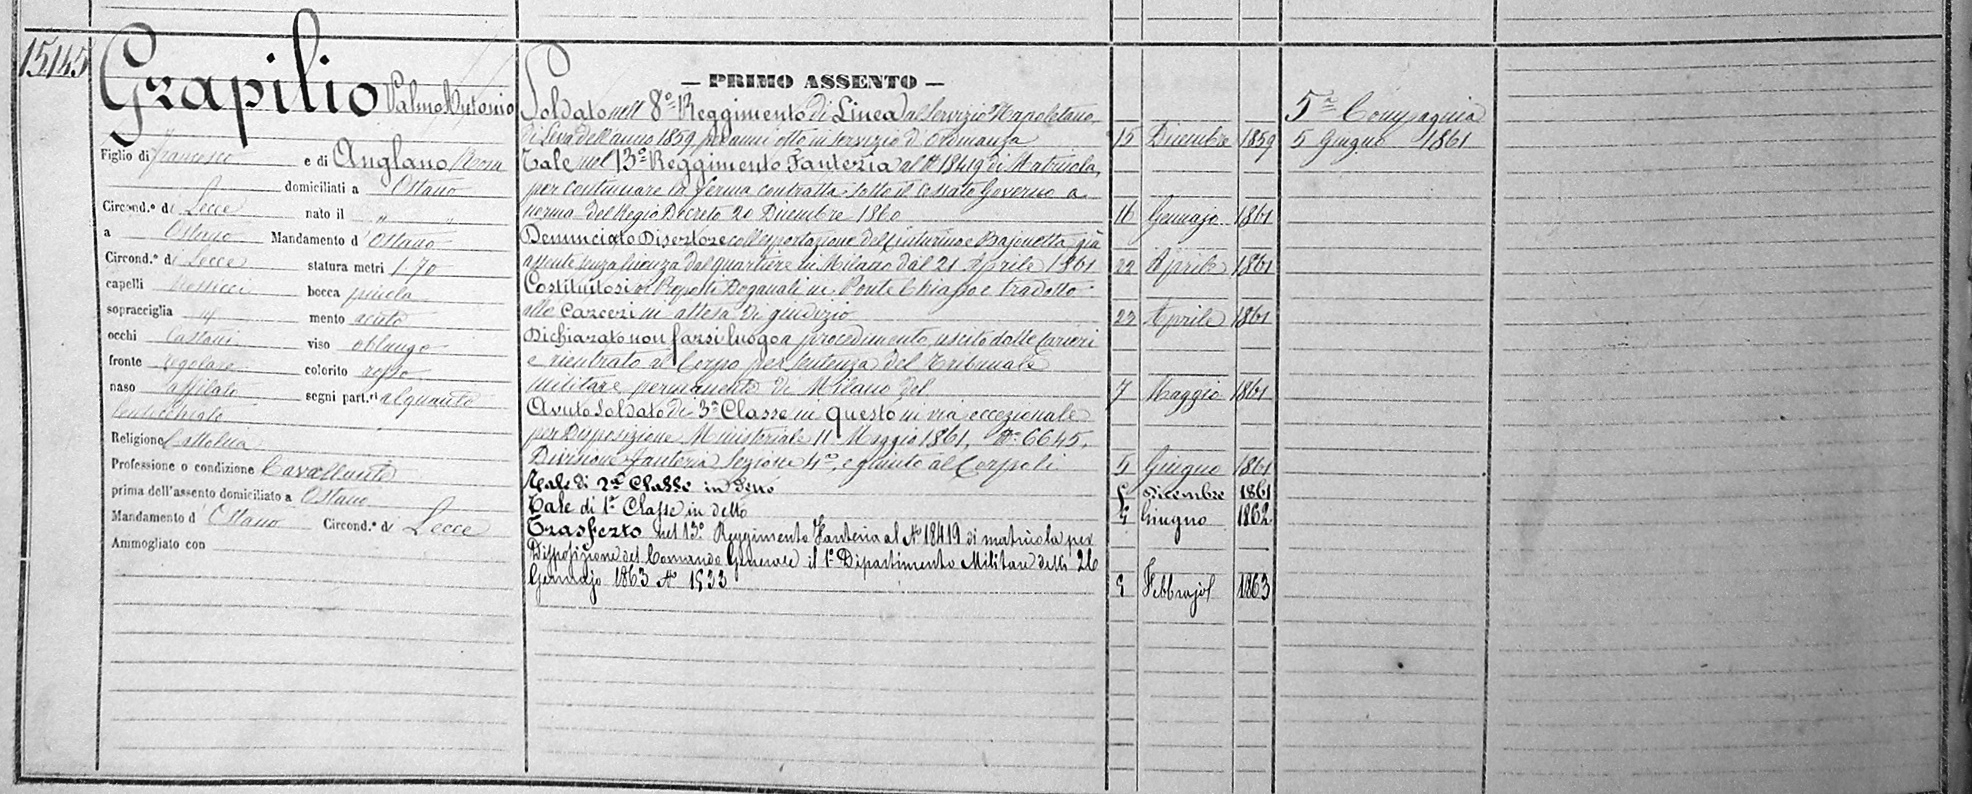 15145
Grapilio Palmo Antonio
Figlio di Francesco e di Anglano Rosa
domiciliati a Ostano
Circond.º di Lecce nato il " "
a Ostano Mandamento d' Ostano
Circond.º di Lecce statura metri 1.70
capelli bocca piccola
sopracciglia id mento acuto
occhi Castani viso oblungo
fronte regolare colorito roseo
naso affilato segni part.ri alquanto
lenticchiato
Religione Cattolica
Professione o condizione Cavallante
prima dell'assento domiciliato a Ostano
Mandamento d' Ostano Circond.º di Lecce
Ammogliato con
— PRIMO ASSENTO —
Soldato nell 8º Reggimento di Linea al Servizio Napoletano,
di Leva dell'anno 1859 per anni otto in servizio d'Ordinanza 15 Dicembre 1859
Tale nel 13º Reggimento Fanteria al Nº 18419 di Matricola,
per continuare la ferma contratta sotto il cessato Governo a
norma del Regio Decreto 20 Dicembre 1860 16 Gennajo 1861
Denunciato Disertore coll'esportazione del Cinturino e Bajonetta, già
assente senza licenza dal quartiere in Milano dal 21 Aprile 1861 22 Aprile 1861
Costituitosi ai Preposti Doganali in Ponte Chiasso e tradotto
alle Carceri in attesa di giudizio 23 Aprile 1861
Dichiarato non farsi luogo a procedimento, uscito dalle Carceri
e rientrato al Corpo per sentenza del Tribunale
militare permanente di Milano del 7 Maggio 1861
Avuto Soldato di 3ª Classe in questo in via eccezionale
per Disposizione Ministeriale 11 Maggio 1861, Nº 6645,
Divisione fanteria Sezione 4ª, e giunto al Corpo li 5 Giugno 1861
Tale di 2ª Classe in detto 5 Dicembre 1861
Tale di 1ª Classe in detto 5 Giugno 1862
Trasferto nel 13º Reggimento Fanteria al Nº 18419 di matricola per
Disposizione del Comando Generale il 1º Dipartimento Militare delli 26
Gennajo 1863 Nº 1533 5 Febbrajo 1863
5ª Compagnia
5 Giugno 1861